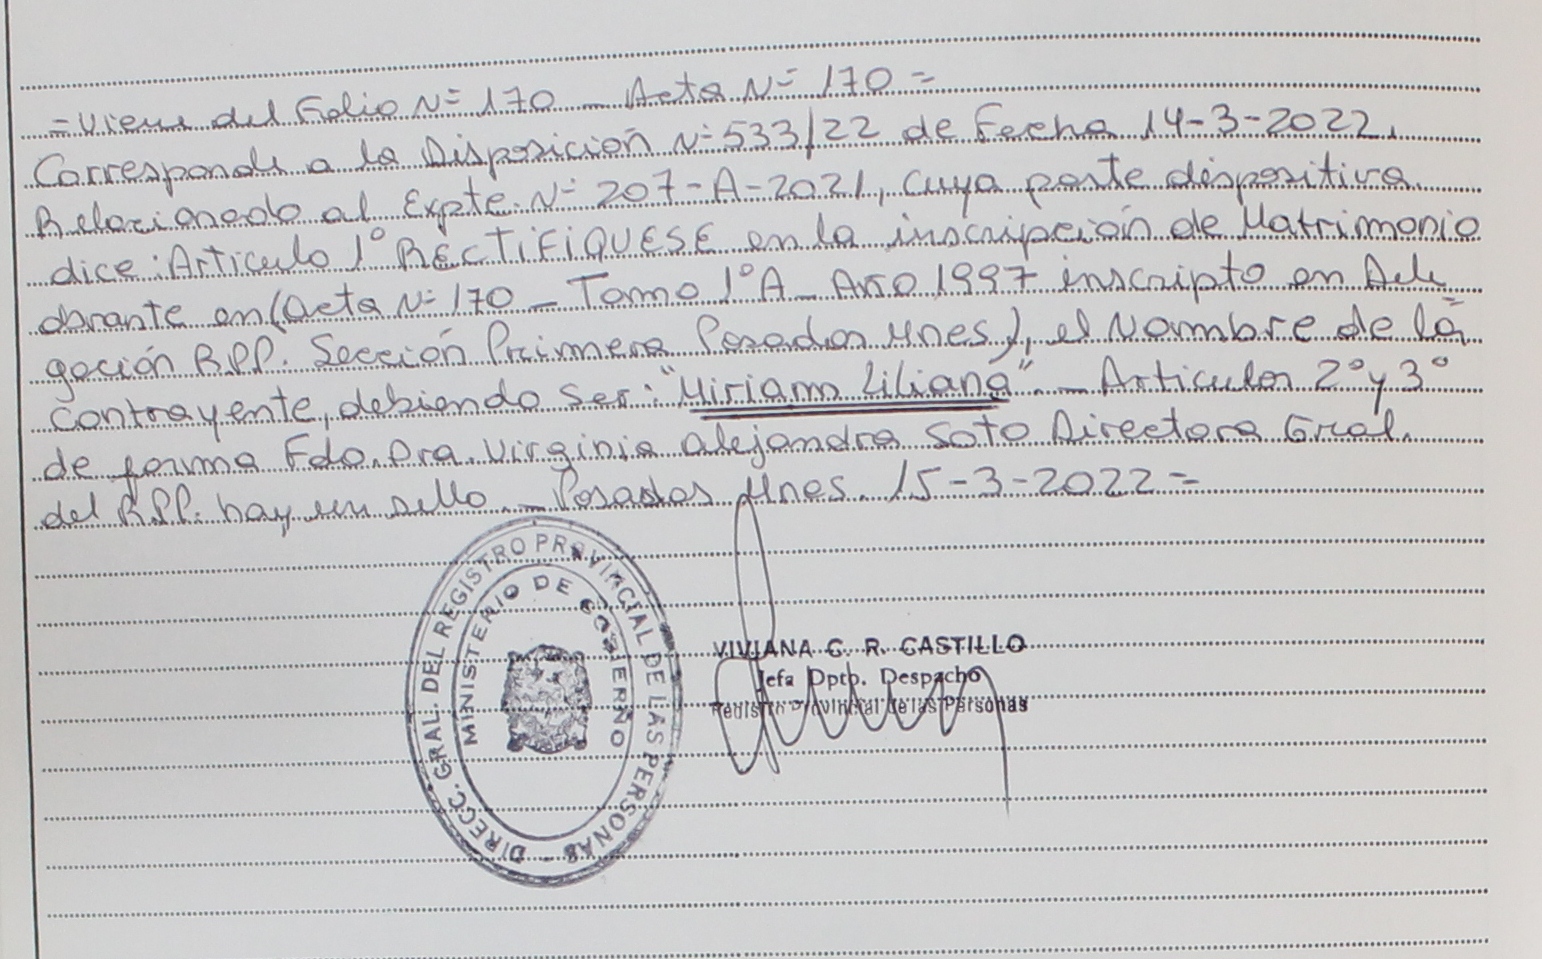 =Viene del Folio Nº 170 _ Acta Nº 170 =
Corresponde a la Disposición Nº 533/22 de Fecha 14-3-2022.
Relacionado al Expte. Nº 207-A-2021, cuya parte dispositiva
dice: Artículo 1º RECTIFIQUESE en la inscripción de Matrimonio
obrante en (Acta Nº 170 _ Tomo 1º A _ Año 1997 inscripto en Dele
gación RPP. Sección Primera Posadas Mnes), el Nombre de la
contrayente, debiendo ser: "Miriam Liliana". _ Articulos 2º y 3º
de forma Fdo. Dra. Virginia Alejandra Soto Directora Gral.
del RPP. hay un sello. _ Posadas Mnes. 15-3-2022 =
DIRECC. GRAL. DEL REGISTRO PROVINCIAL DE LAS PERSONAS -
MINISTERIO DE GOBIERNO
VIVIANA G. R. CASTILLO
Jefa Dpto. Despacho
Registro Provincial de las Personas